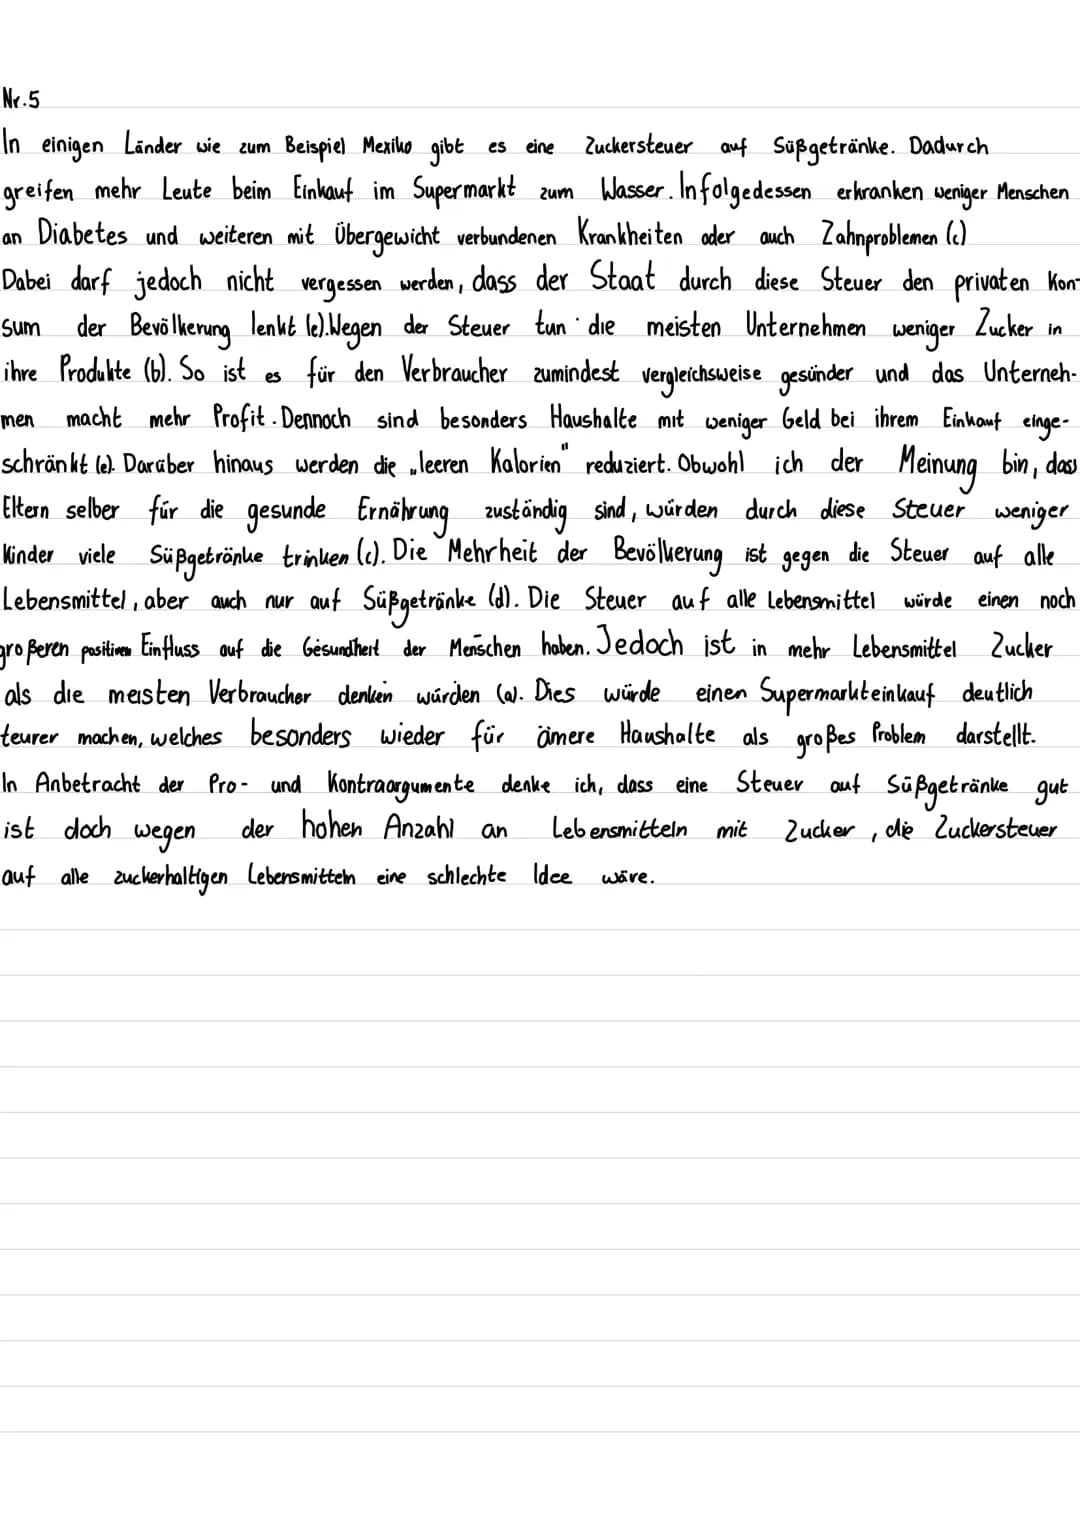 Nr.5
In einigen Länder wie zum Beispiel Mexiko gibt es eine Zuckersteuer auf Süßgetränke. Dadurch
greifen mehr Leute beim Einkauf im Supermarkt zum Wasser. Infolgedessen erkranken weniger Menschen
an Diabetes und weiteren mit Übergewicht verbundenen Krankheiten oder auch Zahnproblemen (c)
Dabei darf jedoch nicht vergessen werden, dass der Staat durch diese Steuer den privaten Kon-
sum der Bevölkerung lenkt (e). Wegen der Steuer tun die meisten Unternehmen weniger Zucker in
ihre Produkte (b). So ist es für den Verbraucher zumindest vergleichsweise gesünder und das Unterneh-
men macht mehr Profit. Dennoch sind besonders Haushalte mit weniger Geld bei ihrem Einkauf einge-
schränkt (e). Darüber hinaus werden die „leeren Kalorien" reduziert. Obwohl ich der Meinung bin, dass
Eltern selber für die gesunde Ernährung zuständig sind, würden durch diese Steuer weniger
Kinder viele Süßgetränke trinken (c). Die Mehrheit der Bevölkerung ist gegen die Steuer auf alle
Lebensmittel, aber auch nur auf Süßgetränke (d). Die Steuer auf alle Lebensmittel würde einen noch
größeren positiven Einfluss auf die Gesundheit der Menschen haben. Jedoch ist in mehr Lebensmittel Zucker
als die meisten Verbraucher denken würden (a). Dies würde einen Supermarkteinkauf deutlich
teurer machen, welches besonders wieder für ämere Haushalte als großes Problem darstellt.
In Anbetracht der Pro- und Kontraargumente denke ich, dass eine Steuer auf Süßgetränke gut
ist doch wegen der hohen Anzahl an Lebensmitteln mit Zucker, die Zuckersteuer
auf alle zuckerhaltigen Lebensmitteln eine schlechte Idee wäre.